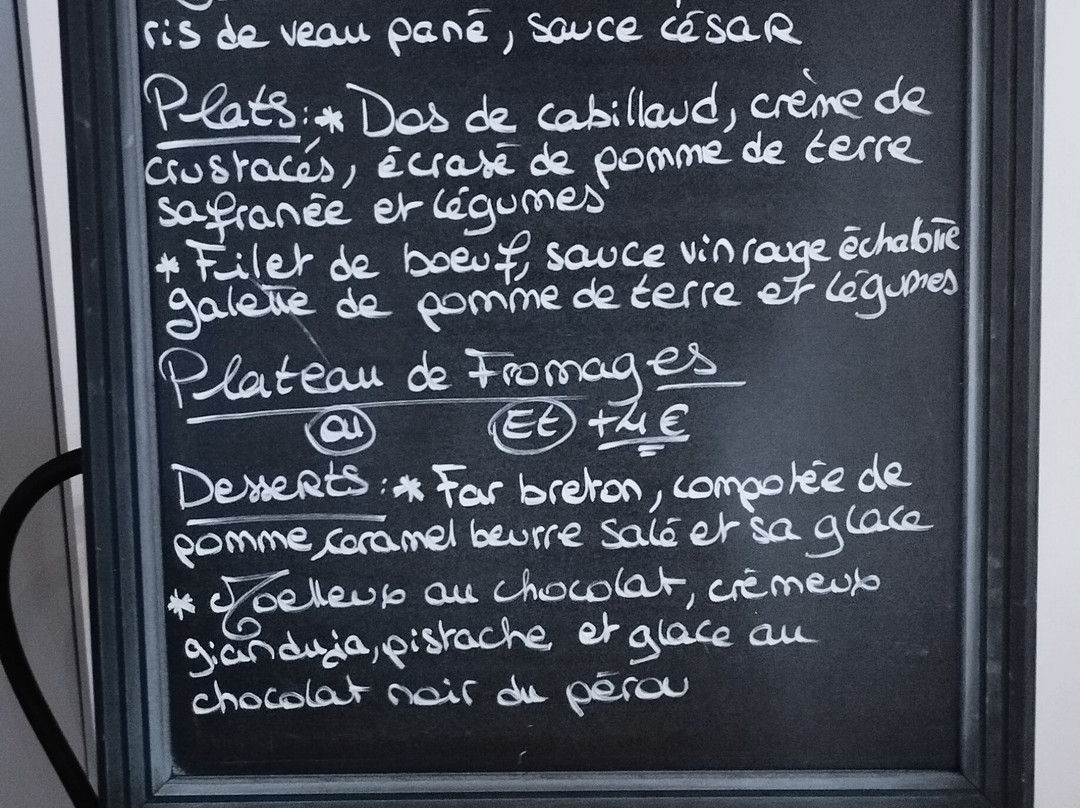 ris de veau pané, sauce césar
Plats : * Dos de cabillaud, crème de
crustacés, écrasé de pomme de terre
safranée et légumes
* Filet de boeuf, sauce vin rouge échalotte
galette de pomme de terre et légumes
Plateau de Fromages
ou Et +4 €
Desserts : * Far breton, compotée de
pomme, caramel beurre salé et sa glace
* Moelleux au chocolat, crémeux
gianduja, pistache et glace au
chocolat noir du pérou